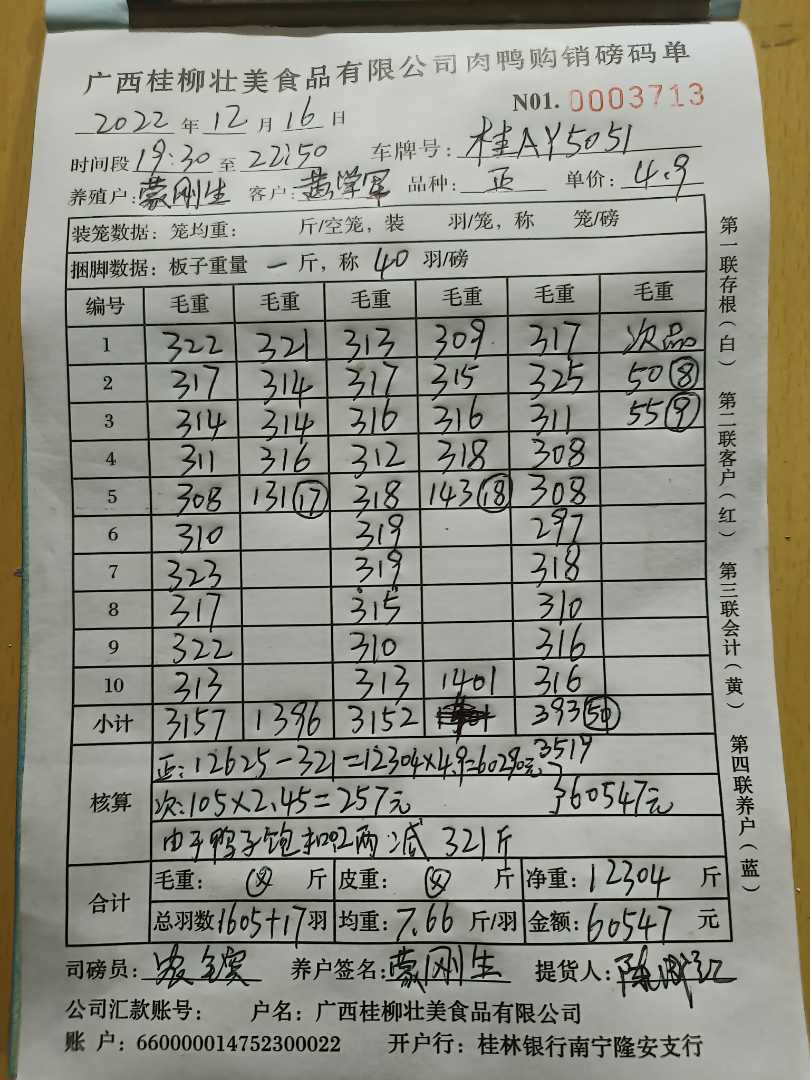 广西桂柳壮美食品有限公司肉鸭购销磅码单
NO1. 0003713
2022 年 12 月 16 日
时间段 19:30 至 22:50 车牌号: 桂AY5051
养殖户: 蒙刚生 客户: 品种: 正 单价: 4.9
装笼数据: 笼均重: 斤/空笼, 装 羽/笼, 称 笼/磅
捆脚数据: 板子重量 一 斤, 称 40 羽/磅
编号 毛重 毛重 毛重 毛重 毛重 毛重
1 322 321 313 309 317 次品
2 317 314 317 315 325 50 8
3 314 314 316 316 311 55 9
4 311 316 312 318 308
5 308 131 17 318 143 18 308
6 310 319 297
7 323 319 318
8 317 315 310
9 322 310 316
10 313 313 1401 316
小计 3157 1396 3152 393 50
3519
核算 正: 12625-321=12304×4.9=60290元
次: 105×2.45=257元 60547元
由于鸭子饱和扣2两减 321斤
合计 毛重: 斤 皮重: 斤 净重: 12304 斤
总羽数 1605+17 羽 均重: 7.66 斤/羽 金额: 60547 元
司磅员: 养户签名: 蒙刚生 提货人:
公司汇款账号: 户名: 广西桂柳壮美食品有限公司
账 户: 660000014752300022 开户行: 桂林银行南宁隆安支行
第一联存根(白) 第二联客户(红) 第三联会计(黄) 第四联养户(蓝)